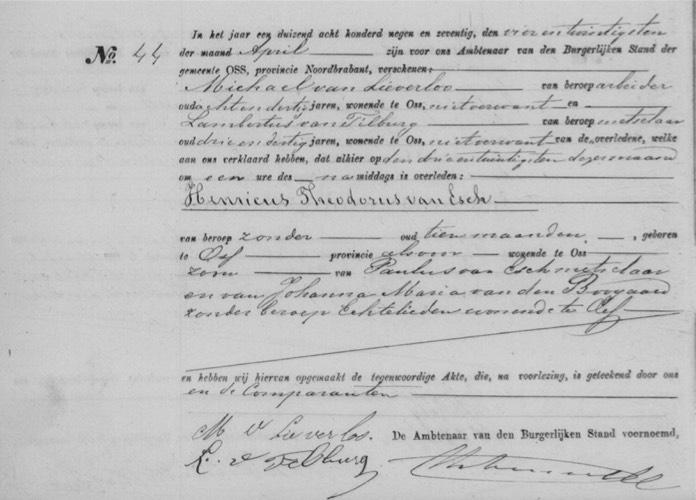 In het jaar een duizend acht honderd negen en zeventig, den vierentwintigsten
No. 44
der maand April zijn voor ons Ambtenaar van den Burgerlijken Stand der
gemeente OSS, provincie Noordbrabant, verschenen:
Michael van Lieverloo van beroep arbeider
oud achtendertig jaren, wonende te Oss, niet verwant en
Lambertus van Tilburg van beroep metselaar
oud drieendertig jaren, wonende te Oss, niet verwant van de overledene, welke
aan ons verklaard hebben, dat alhier op den drieentwintigsten dezer maand
om een ure des namiddags is overleden:
Henricus Theodorus van Esch
van beroep zonder oud tien maanden, geboren
te Oss provincie alsvoren wonende te Oss
zoon van Paulus van Esch metselaar
en van Johanna Maria van den Boogaard
zonder beroep Echtelieden wonende te Oss
en hebben wij hiervan opgemaakt de tegenwoordige Akte, die, na voorlezing, is geteekend door ons
en de Comparanten
M v Lieverloo. De Ambtenaar van den Burgerlijken Stand voornoemd,
L. v Tilburg